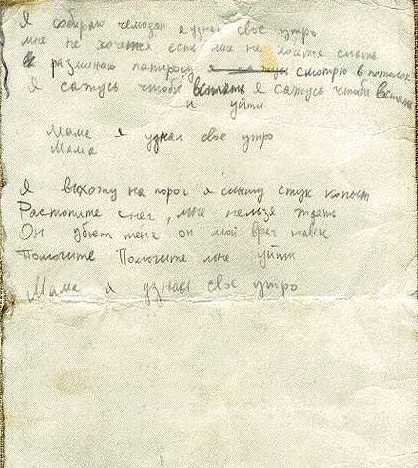 Я собираю чемодан я узнал своё утро
мне не хочется есть мне не хочется спать
Я разминаю папиросу смотрю в потолок
Я сажусь чтобы встать Я сажусь чтобы встать
и уйти
Мама я узнал свое утро
Мама
Я выхожу на порог я слышу стук копыт
Растопите снег, мне нельзя ждать
Он убьет меня он мой враг навек
Помогите Помогите мне уйти
Мама я узнал свое утро